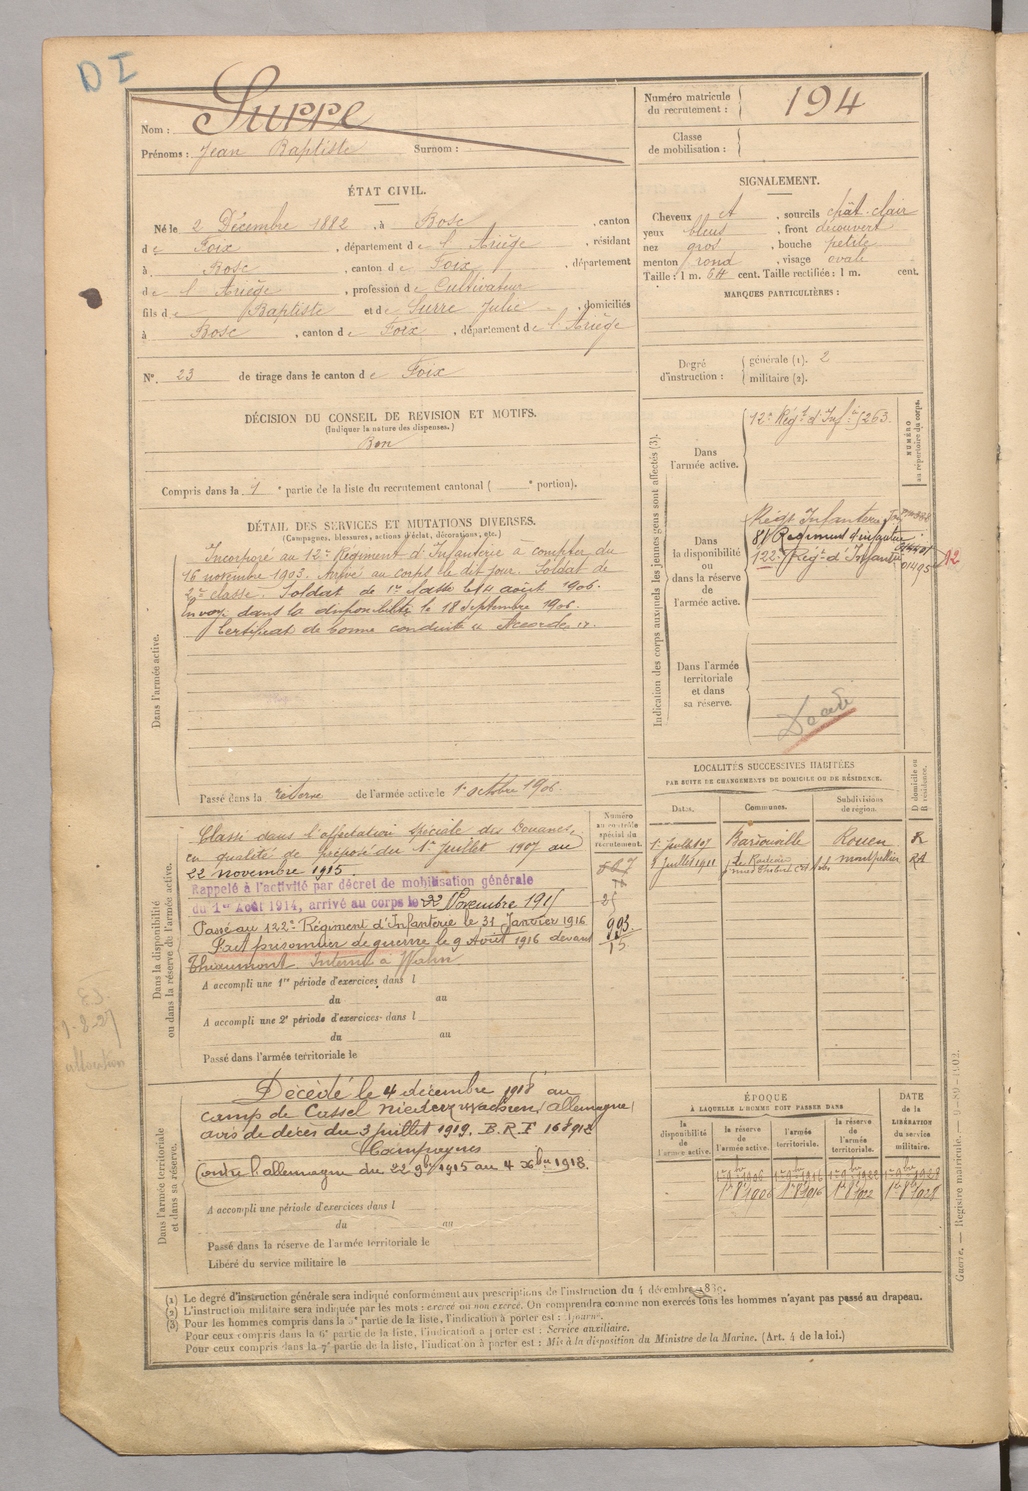 D I
Nom : Surre
Prénoms : Jean Baptiste Surnom :
Numéro matricule du recrutement : 194
Classe de mobilisation :
ÉTAT CIVIL.
Né le 2 Décembre 1882, à Bosc, canton
de Foix, département de l'Ariège, résidant
à Bosc, canton de Foix, département
de l'Ariège, profession de Cultivateur
fils de Baptiste et de Surre Julie, domiciliés
à Bosc, canton de Foix, département de l'Ariège
N° 23 de tirage dans le canton de Foix
SIGNALEMENT.
Cheveux et, sourcils chât-clair
yeux bleus, front découvert
nez gros, bouche petite
menton rond, visage ovale
Taille : 1 m. 64 cent. Taille rectifiée : 1 m. cent.
MARQUES PARTICULIÈRES :
Degré d'instruction : générale (1). 2
militaire (2).
DÉCISION DU CONSEIL DE REVISION ET MOTIFS.
(Indiquer la nature des dispenses.)
Bon
Compris dans la 1e partie de la liste du recrutement cantonal ( e portion).
DÉTAIL DES SERVICES ET MUTATIONS DIVERSES.
(Campagnes, blessures, actions d'éclat, décorations, etc.)
Dans l'armée active.
Incorporé au 12e Régiment d'Infanterie à compter du
16 novembre 1903. Arrivé au corps le dit jour. Soldat de
2e classe. Soldat de 1re classe le 14 août 1906.
Envoyé dans la disponibilité le 18 septembre 1906.
Certificat de bonne conduite "Accordé".
Passé dans la réserve de l'armée active le 1er octobre 1906
Indication des corps auxquels les jeunes gens sont affectés (3).
NUMÉRO au répertoire du corps.
Dans l'armée active.
12e Régt d'Infie 5263.
Dans la disponibilité ou dans la réserve de l'armée active.
Régt Infanterie
81 Régiment d'infanterie
122e Régt d'Infanterie 01495
92
Dans l'armée territoriale et dans sa réserve.
Décédé
LOCALITÉS SUCCESSIVES HABITÉES
PAR SUITE DE CHANGEMENTS DE DOMICILE OU DE RÉSIDENCE.
Dates. Communes. Subdivisions de région. D domicile ou R résidence.
1er Juillet 07 Bardouville Rouen R
9 Juillet 1911 Montpellier RA
Dans la disponibilité ou dans la réserve de l'armée active.
Numéro au contrôle spécial du recrutement.
Classé dans l'affectation spéciale des Douanes,
en qualité de préposé du 1er Juillet 1907 au
22 novembre 1915.
Rappelé à l'activité par décret de mobilisation générale
du 1er Août 1914, arrivé au corps le 22 Novembre 1915
Passé au 122e Régiment d'Infanterie le 31 Janvier 1916
Fait prisonnier de guerre le 9 Août 1916 devant
Thiaumont. Interné à Wahn
993
15
A accompli une 1re période d'exercices dans l
du au
A accompli une 2e période d'exercices dans l
du au
Passé dans l'armée territoriale le
1-2-27
allocation
Dans l'armée territoriale et dans sa réserve.
Décédé le 4 décembre 1918 au
camp de Cassel Niederzwachren (allemagne)
avis de décès du 3 juillet 1919. B.R.F 168918
Campagnes
Contre l'allemagne du 22 9bre 1915 au 4 Xbre 1918.
A accompli une période d'exercices dans l
du au
Passé dans la réserve de l'armée territoriale le
Libéré du service militaire le
ÉPOQUE
À LAQUELLE L'HOMME DOIT PASSER DANS
la disponibilité de l'armée active.
la réserve de l'armée active.
l'armée territoriale.
la réserve de l'armée territoriale.
DATE de la LIBÉRATION du service militaire.
1er 9bre 1906 1er 9bre 1916 1er 9bre 1922 1er 9bre 1928
1er 8bre 1906 1er 8bre 1916 1er 8bre 1922 1er 8bre 1928
(1) Le degré d'instruction générale sera indiqué conformément aux prescriptions de l'instruction du 4 décembre 1889.
(2) L'instruction militaire sera indiquée par les mots : exercé ou non exercé. On comprendra comme non exercés tous les hommes n'ayant pas passé au drapeau.
(3) Pour les hommes compris dans la 5e partie de la liste, l'indication à porter est : Ajourné.
Pour ceux compris dans la 6e partie de la liste, l'indication à porter est : Service auxiliaire.
Pour ceux compris dans la 7e partie de la liste, l'indication à porter est : Mis à la disposition du Ministre de la Marine. (Art. 4 de la loi.)
Guerre. — Registre matricule. — 9-89-1902.